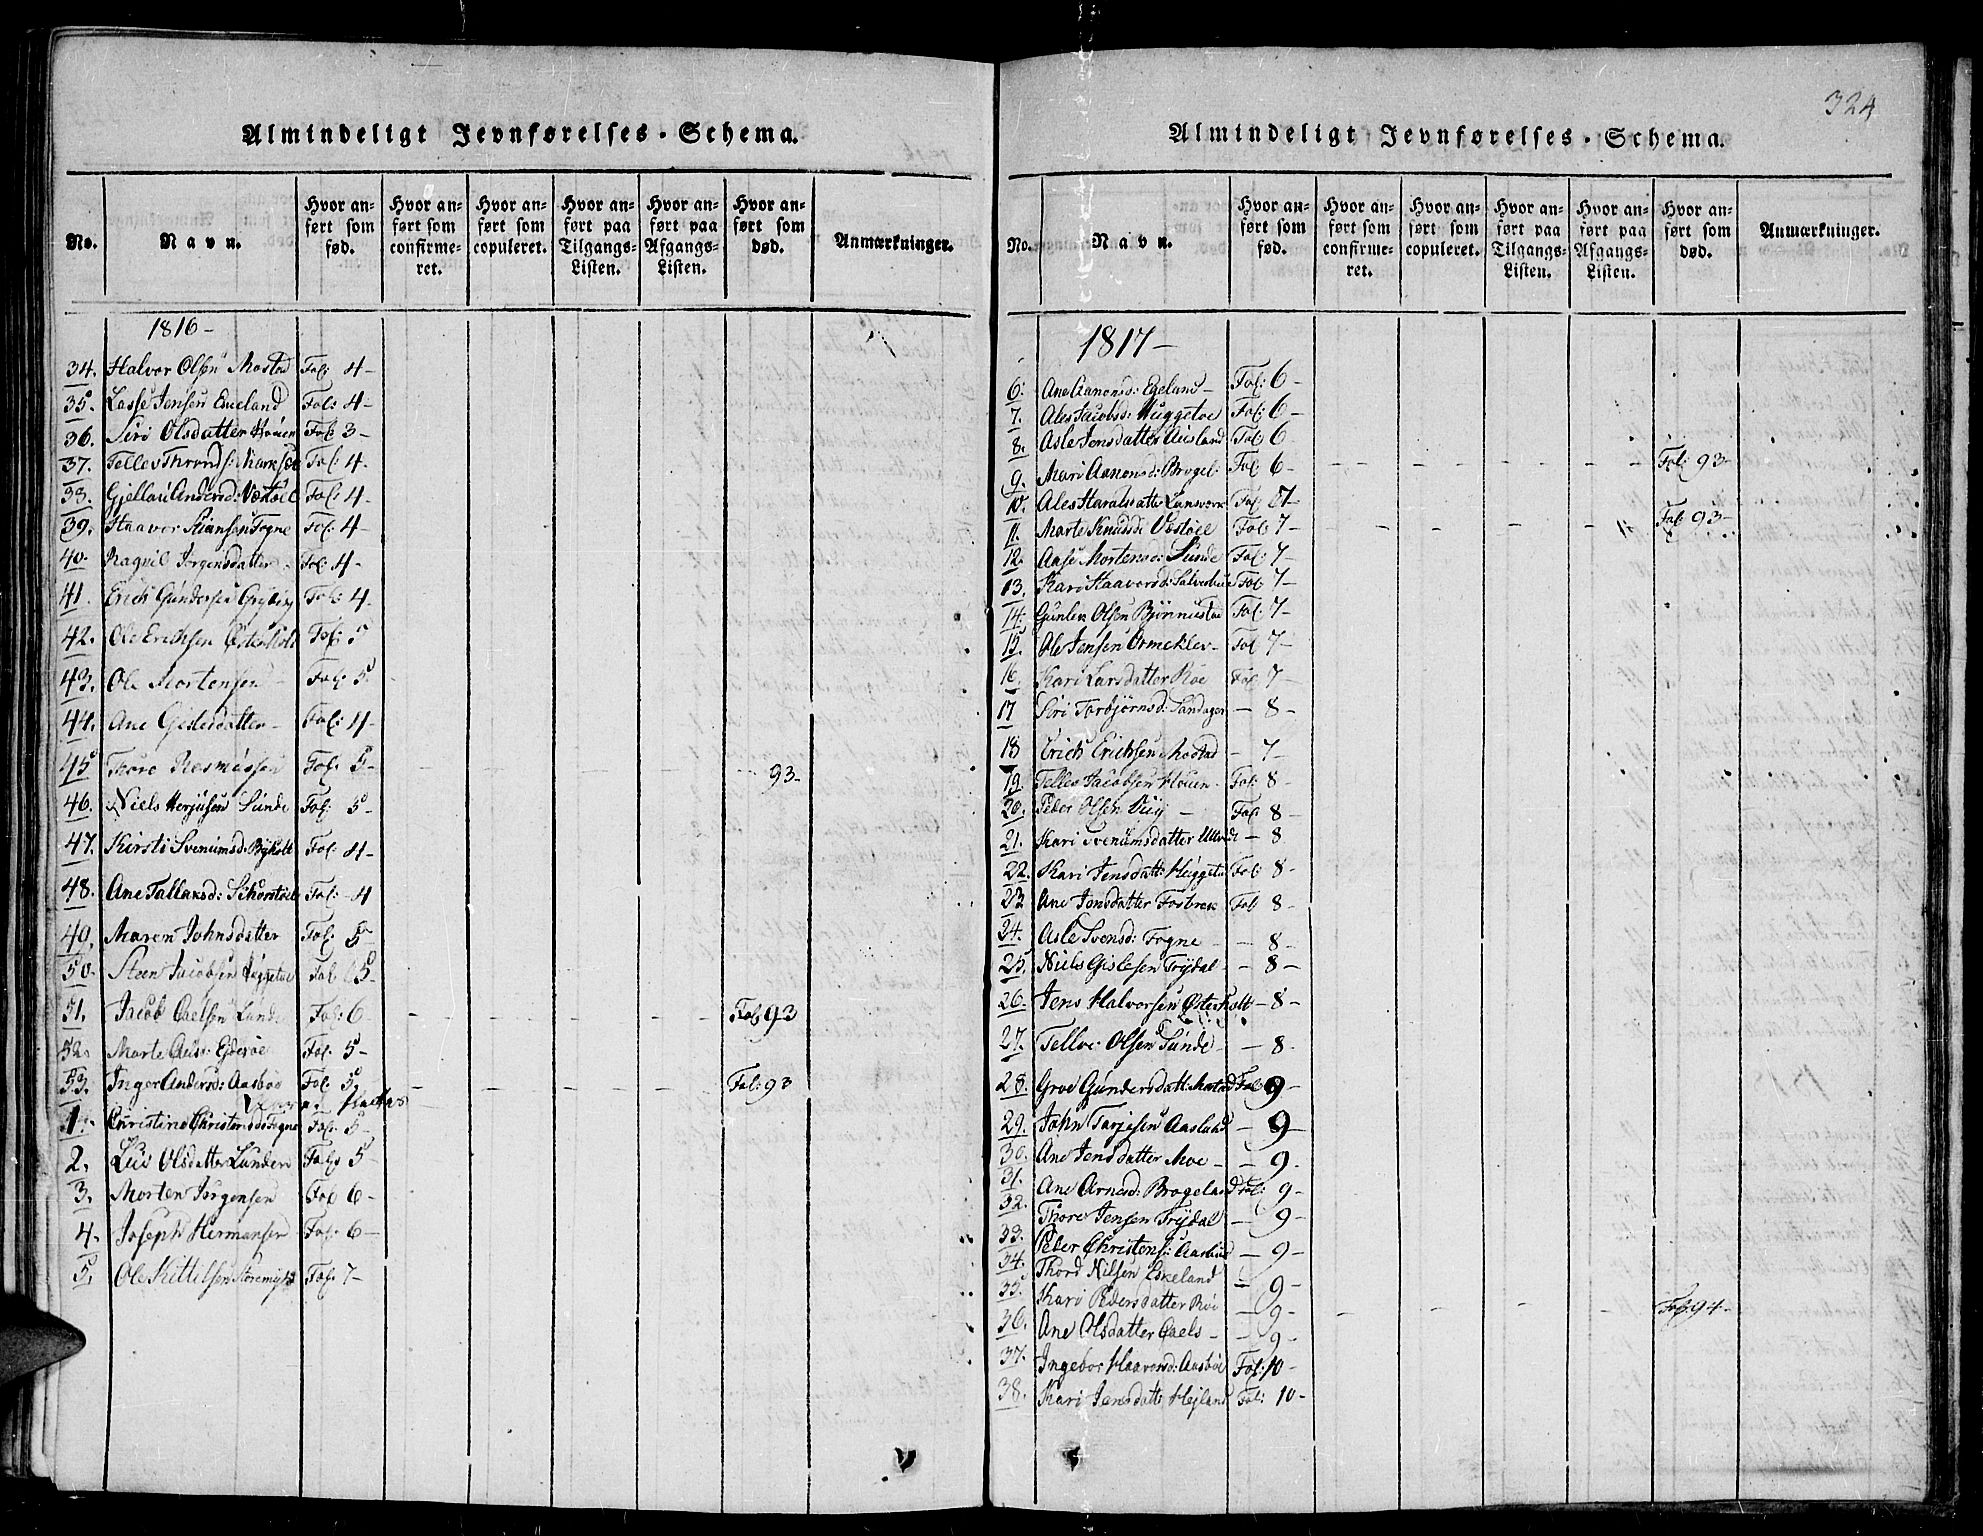 324
Almindeligt Jevnførelses-Schema.
No. Navn. Hvor anført som fød. Hvor anført som confirmeret. Hvor anført som copuleret. Hvor anført paa Tilgangs-Listen. Hvor anført paa Afgangs-Listen. Hvor anført som død. Anmærkninger.
1816-
34. Halvor Olsen Mostad Fol: 4-
35. Lasse Jensen Fol: 4-
36. Siri Olsdatter Houen Fol: 3-
37. Tellev Throndsen: Fol: 4-
38. Andersd: Vostøel Fol: 4-
39. Haavor Fogne Fol: 4-
40. Ragnil Jørgensdatter- Fol: 4-
41. Erich Gundersen Fol: 4-
42. Ole Erichsen Østerholt Fol: 5
43. Ole Mortensen- Fol: 5-
44. Ane Gjedesdatter- Fol: 4-
45 Thore Rasmussen Fol: 5- 93-
46. Niels Sunde Fol: 5-
47. Kirsti Svenumsd: Fol: 4-
48. Ane Tallaksd: Fol: 4
49. Maren Johnsdatter Fol: 5-
50. Steen Jacobsen Huggetoe Fol 5-
51. Jacob Lunde Fol: 6- Fol 93
52. Marte Fol: 5-
53. Inger Andersd: Aasbøe Fol: 5 Fol: 93
1. Christine Fogne Fol: 5-
2. Olsdatter Lunden Fol: 5
3. Morten Jørgensen Fol 6-
4. Joseph Hermansen Fol: 6-
5. Ole Kittelsen Storemyhr Fol: 7-
Almindeligt Jevnførelses-Schema.
No. Navn. Hvor anført som fød. Hvor anført som confirmeret. Hvor anført som copuleret. Hvor anført paa Tilgangs-Listen. Hvor anført paa Afgangs-Listen. Hvor anført som død. Anmærkninger.
1817-
6. Ane Aanonsd: Egeland- Fol: 6-
7. Ales Jacobsd: Huggetoe Fol: 6-
8. Asle Jensdatter Fol: 6
9. Mari Aanonsd: Fol: 6- Fol: 93-
10. Ales Lunsverk Fol: 7-
11. Marte Knudsd: Vostøel Fol: 7- Fol: 93-
12. Aase Sunde Fol: 7-
13. Kari Haavorsd: Fol: 7-
14. Gunlev Olsen Fol: 7-
15. Ole Jensen Ormeklev- Fol 7-
16. Kari Larsdatter Røe Fol 7-
17 Siri Torbjørnsd: Sandager - 8-
18 Erich Erichsen Mostad - 7-
19. Tellev Jacobsen Houen- Fol: 8-
20. Peder Olsen - Fol: 8-
21. Kari Svenumsdatter - 8
22. Kari Jensdatt: Huggetoe Fol 8-
23 Ane Jensdatter Fosbræk Fol 8-
24. Asle Svensd: Fogne - 8-
25. Niels Gislesen Frydal - 8-
26. Jens Halvorsen Østerholt - 8-
27. Tellve Olsen Sunde - 8-
28. Groe Gundersdatt: Mostad Fol 9-
29. John Tarjesen Aaslund - 9-
30. Ane Jensdatter Moe - - 9-
31. Ane Arnesd: Brogeland Fol: 9-
32. Thore Jensen Frydal - 9-
33. Peder Christens: Aaslund - 9-
34. Thord Nilsen Eskeland - 9-
35. Kari Pedersdatter Røe - 9-
36. Ane Olsdatter - 9- Fol: 94-
37. Ingebor Haavorsd: Aasbøe Fol: 10-
38. Kari Jensdatt: Hejland Fol: 10-